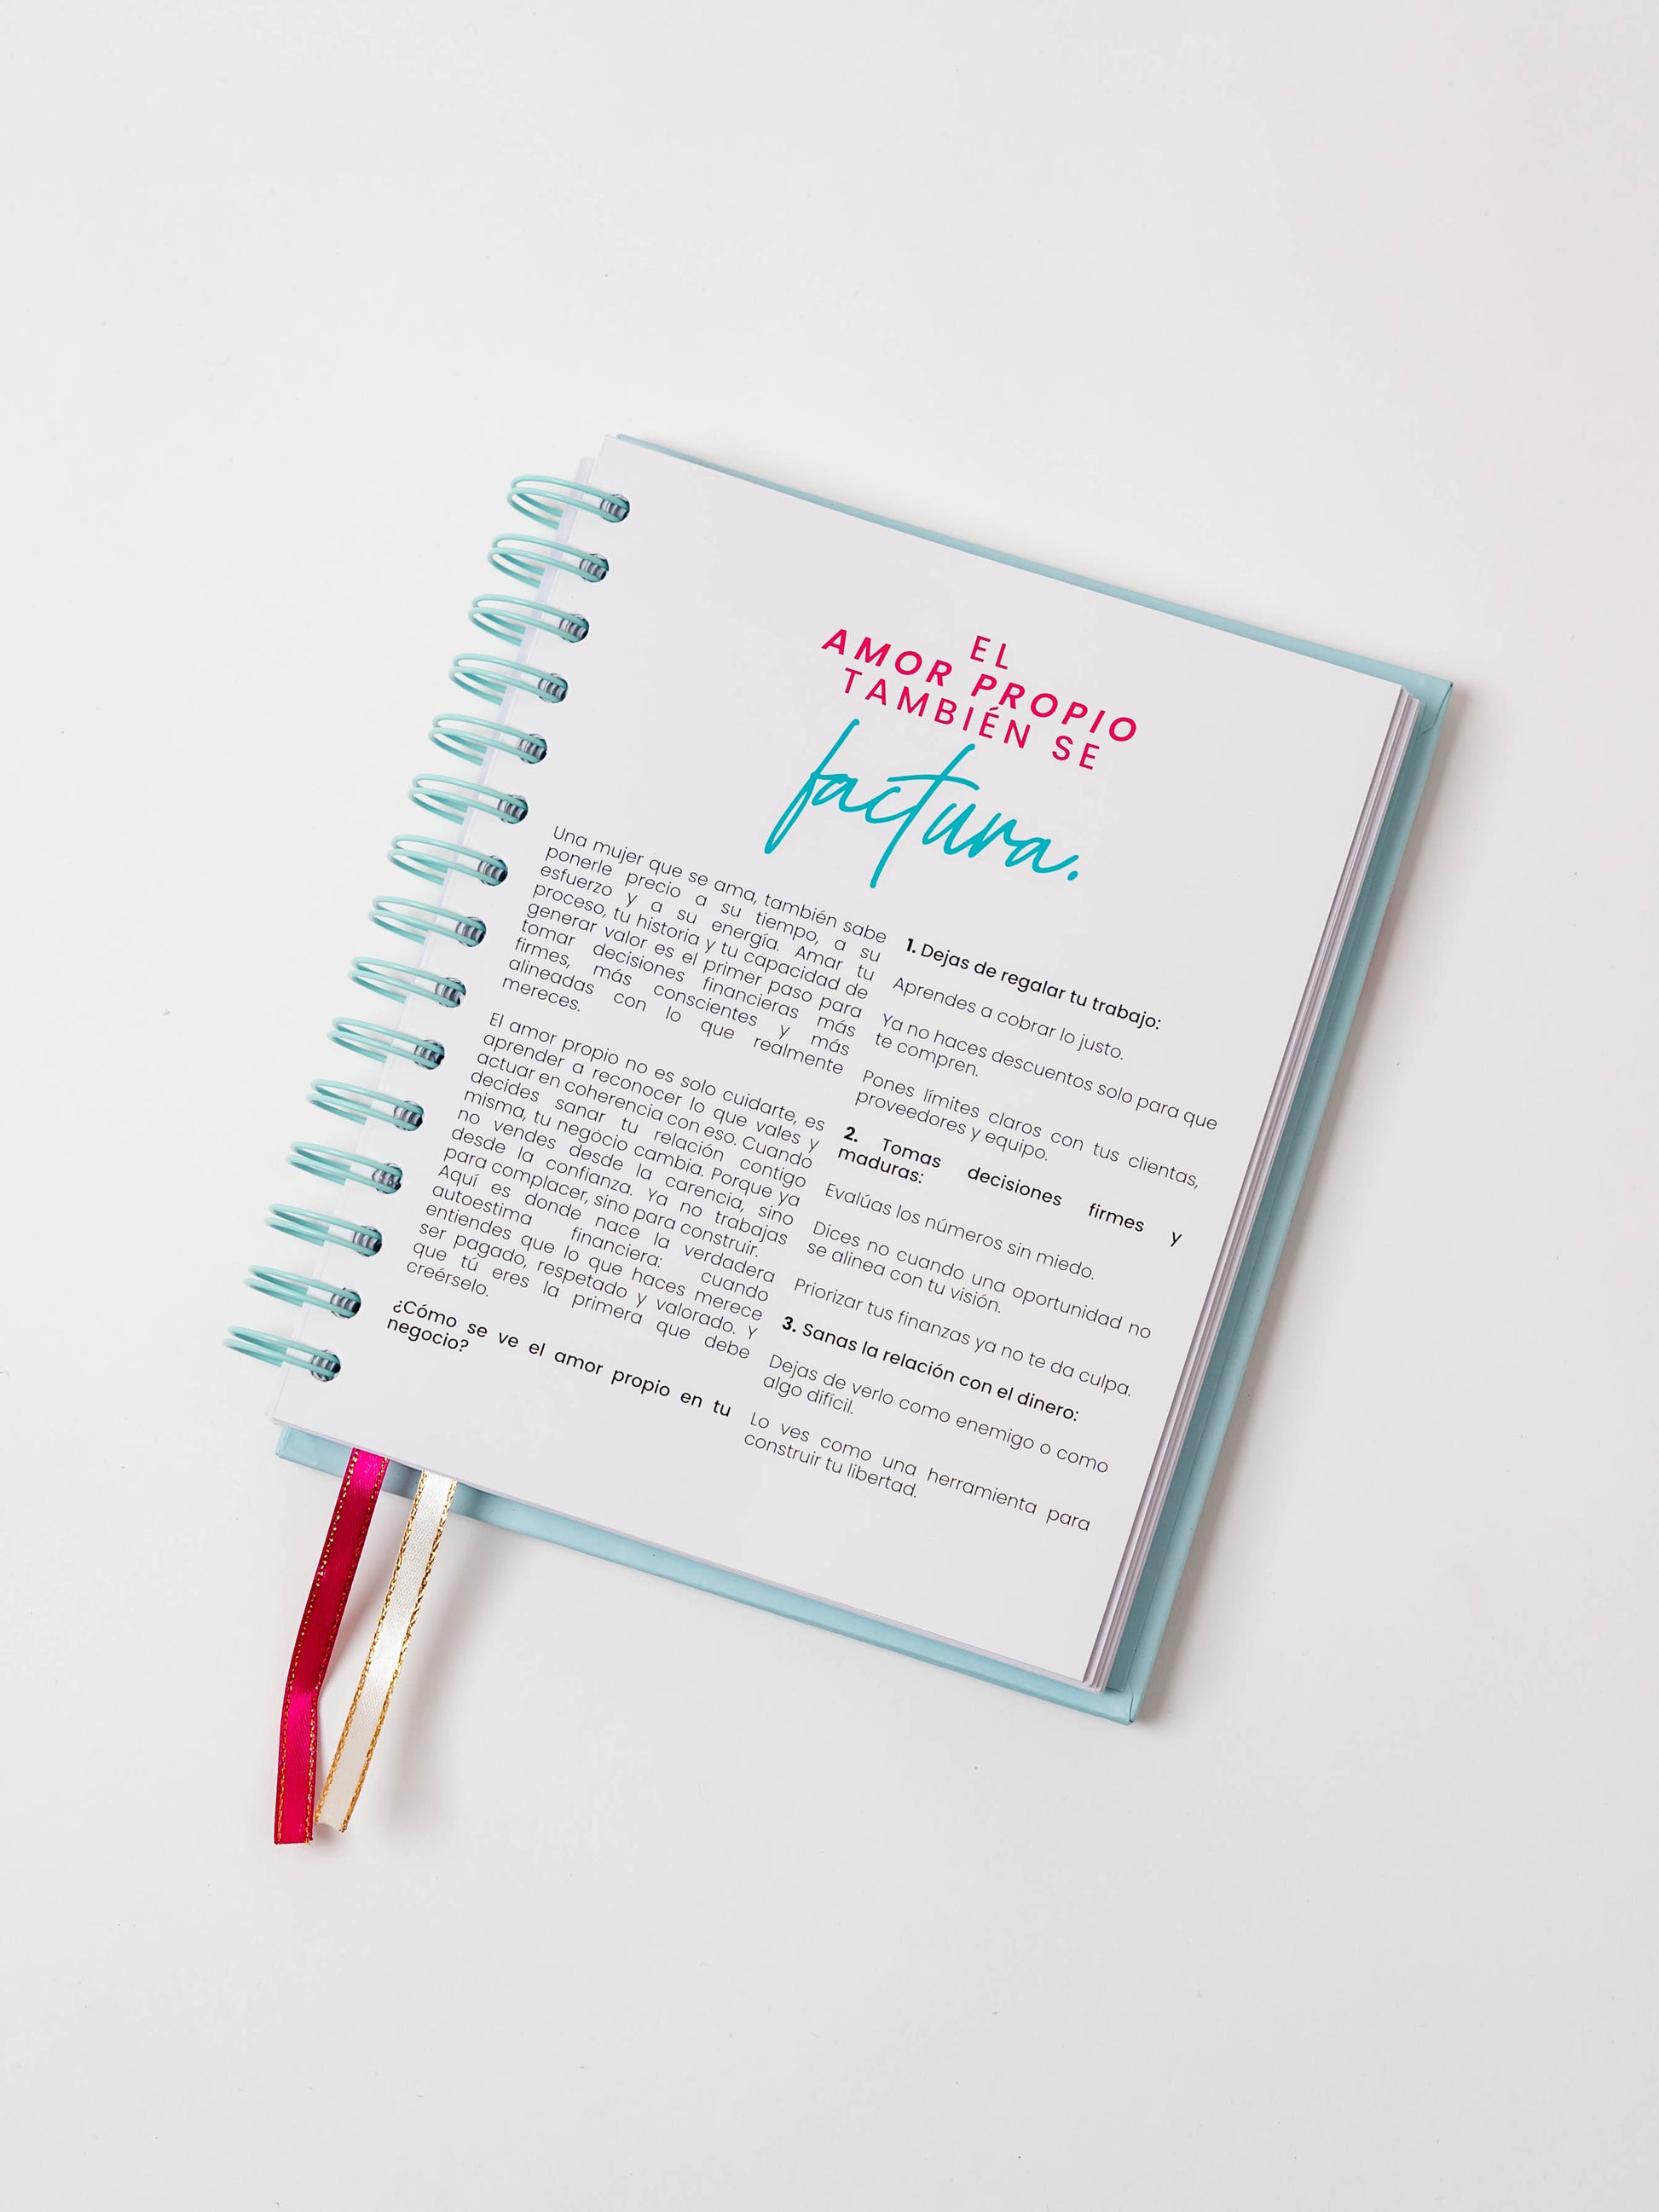 EL
AMOR PROPIO
TAMBIÉN SE
factura.
Una mujer que se ama, también sabe
ponerle precio a su tiempo, a su
esfuerzo y a su energía. Amar tu
proceso, tu historia y tu capacidad de
generar valor es el primer paso para
tomar decisiones financieras más
firmes, más conscientes y más
alineadas con lo que realmente
mereces.
El amor propio no es solo cuidarte, es
aprender a reconocer lo que vales y
actuar en coherencia con eso. Cuando
decides sanar tu relación contigo
misma, tu negocio cambia. Porque ya
no vendes desde la carencia, sino
desde la confianza. Ya no trabajas
para complacer, sino para construir.
Aquí es donde nace la verdadera
autoestima financiera: cuando
entiendes que lo que haces merece
ser pagado, respetado y valorado. Y
que tú eres la primera que debe
creérselo.
¿Cómo se ve el amor propio en tu
negocio?
1. Dejas de regalar tu trabajo:
Aprendes a cobrar lo justo.
Ya no haces descuentos solo para que
te compren.
Pones límites claros con tus clientes,
proveedores y equipo.
2. Tomas decisiones firmes y
maduras:
Evalúas los números sin miedo.
Dices no cuando una oportunidad no
se alinea con tu visión.
Priorizar tus finanzas ya no te da culpa.
3. Sanas la relación con el dinero:
Dejas de verlo como enemigo o como
algo difícil.
Lo ves como una herramienta para
construir tu libertad.